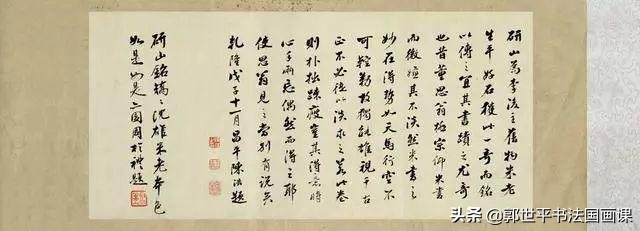 研山為李後主舊物米老
生平好石獲此一奇而銘
以傳之宜其書蹟之尤奇
也昔董思翁極宗仰米書
而微憾其不淡然米書之
妙在得勢如天馬行空不
可控勒故獨能雄視千古
正不必徑以淡求之若此卷
則朴拙疎瘦豈其得意時
心手兩忘偶然而得之耶
使思翁見之當別有說矣
乾隆戊子十一月昌平陳浩題
研山銘沈雄米老本色
如是如是周於禮題
头条 @郭世平书法国画课